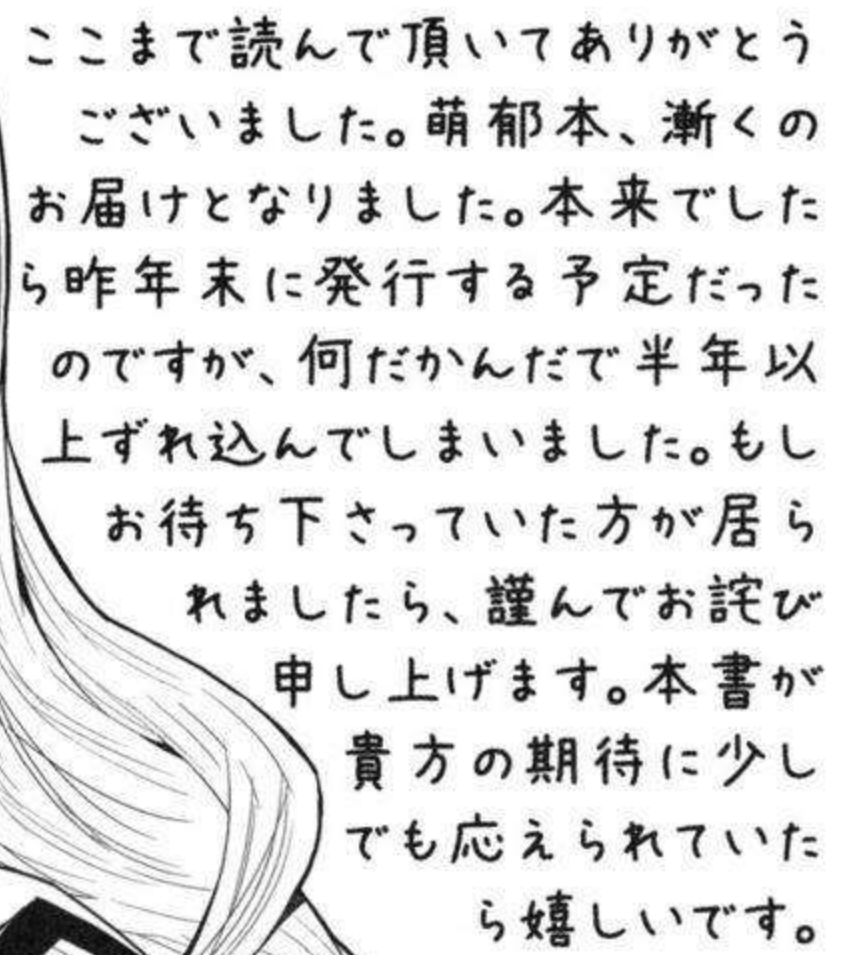 ここまで読んで頂いてありがとう
ございました。萌郁本、漸くの
お届けとなりました。本来でした
ら昨年末に発行する予定だった
のですが、何だかんだで半年以
上ずれ込んでしまいました。もし
お待ち下さっていた方が居ら
れましたら、謹んでお詫び
申し上げます。本書が
貴方の期待に少し
でも応えられていた
ら嬉しいです。